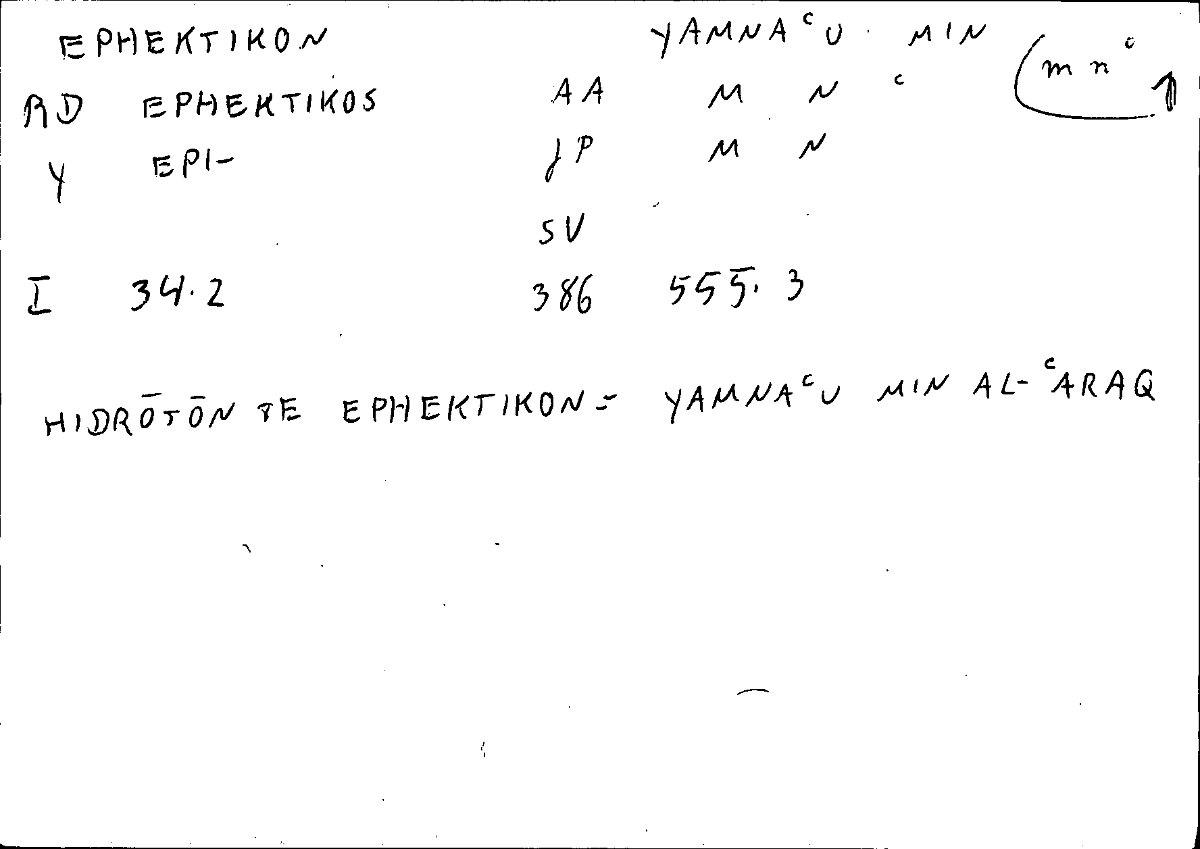 EPHEKTIKON YAMNAᶜU MIN (mnᶜ
RD EPHEKTIKOS AA M N ᶜ
Y EPI- JP M N
SV
I 34.2 386 555.3
HIDRŌTŌN TE EPHEKTIKON = YAMNAᶜU MIN AL-ᶜARAQ